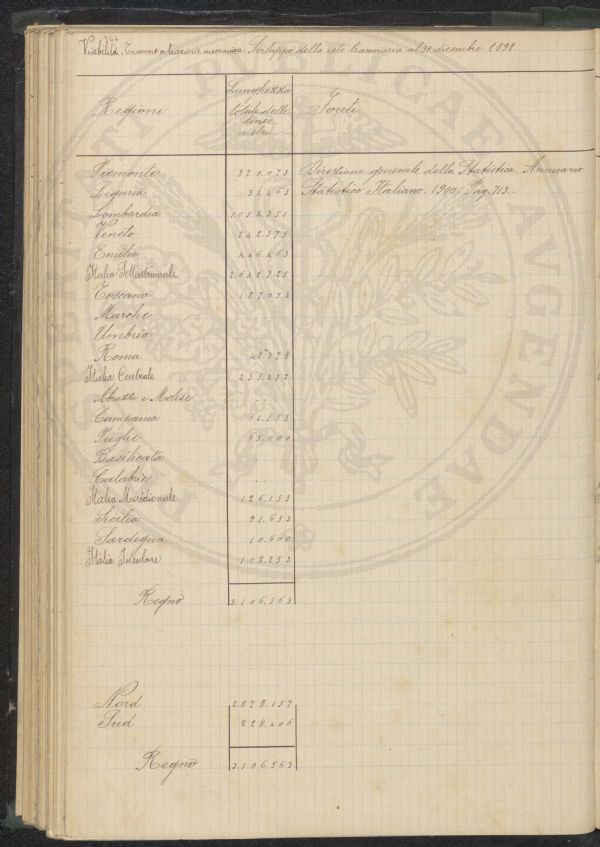 Viabilità. Tramvie a trazione meccanica. Sviluppo della rete tramviaria al 31 dicembre 1898.
Regioni
Lunghezza
totale delle
linee
metri
Fonti
Piemonte 870.073 Direzione generale della Statistica. Annuario
Liguria 31.463 Statistico Italiano. 1900, Pag. 713.
Lombardia 1052.351
Veneto 242.375
Emilia 446.463
Italia Settentrionale 2642.725
Toscana 187.054
Marche ..
Umbria
Roma 48.378
Italia Centrale 235.432
Abruzzi e Molise ..
Campania 61.153
Puglie 65.000
Basilicata
Calabrie ..
Italia Meridionale 126.153
Sicilia 91.653
Sardegna 10.600
Italia Insulare 102.253
Regno 3.106.563
Nord 2.878.157
Sud 228.406
Regno 3.106.563
PROSPERITATI PUBLICAE AUGENDAE